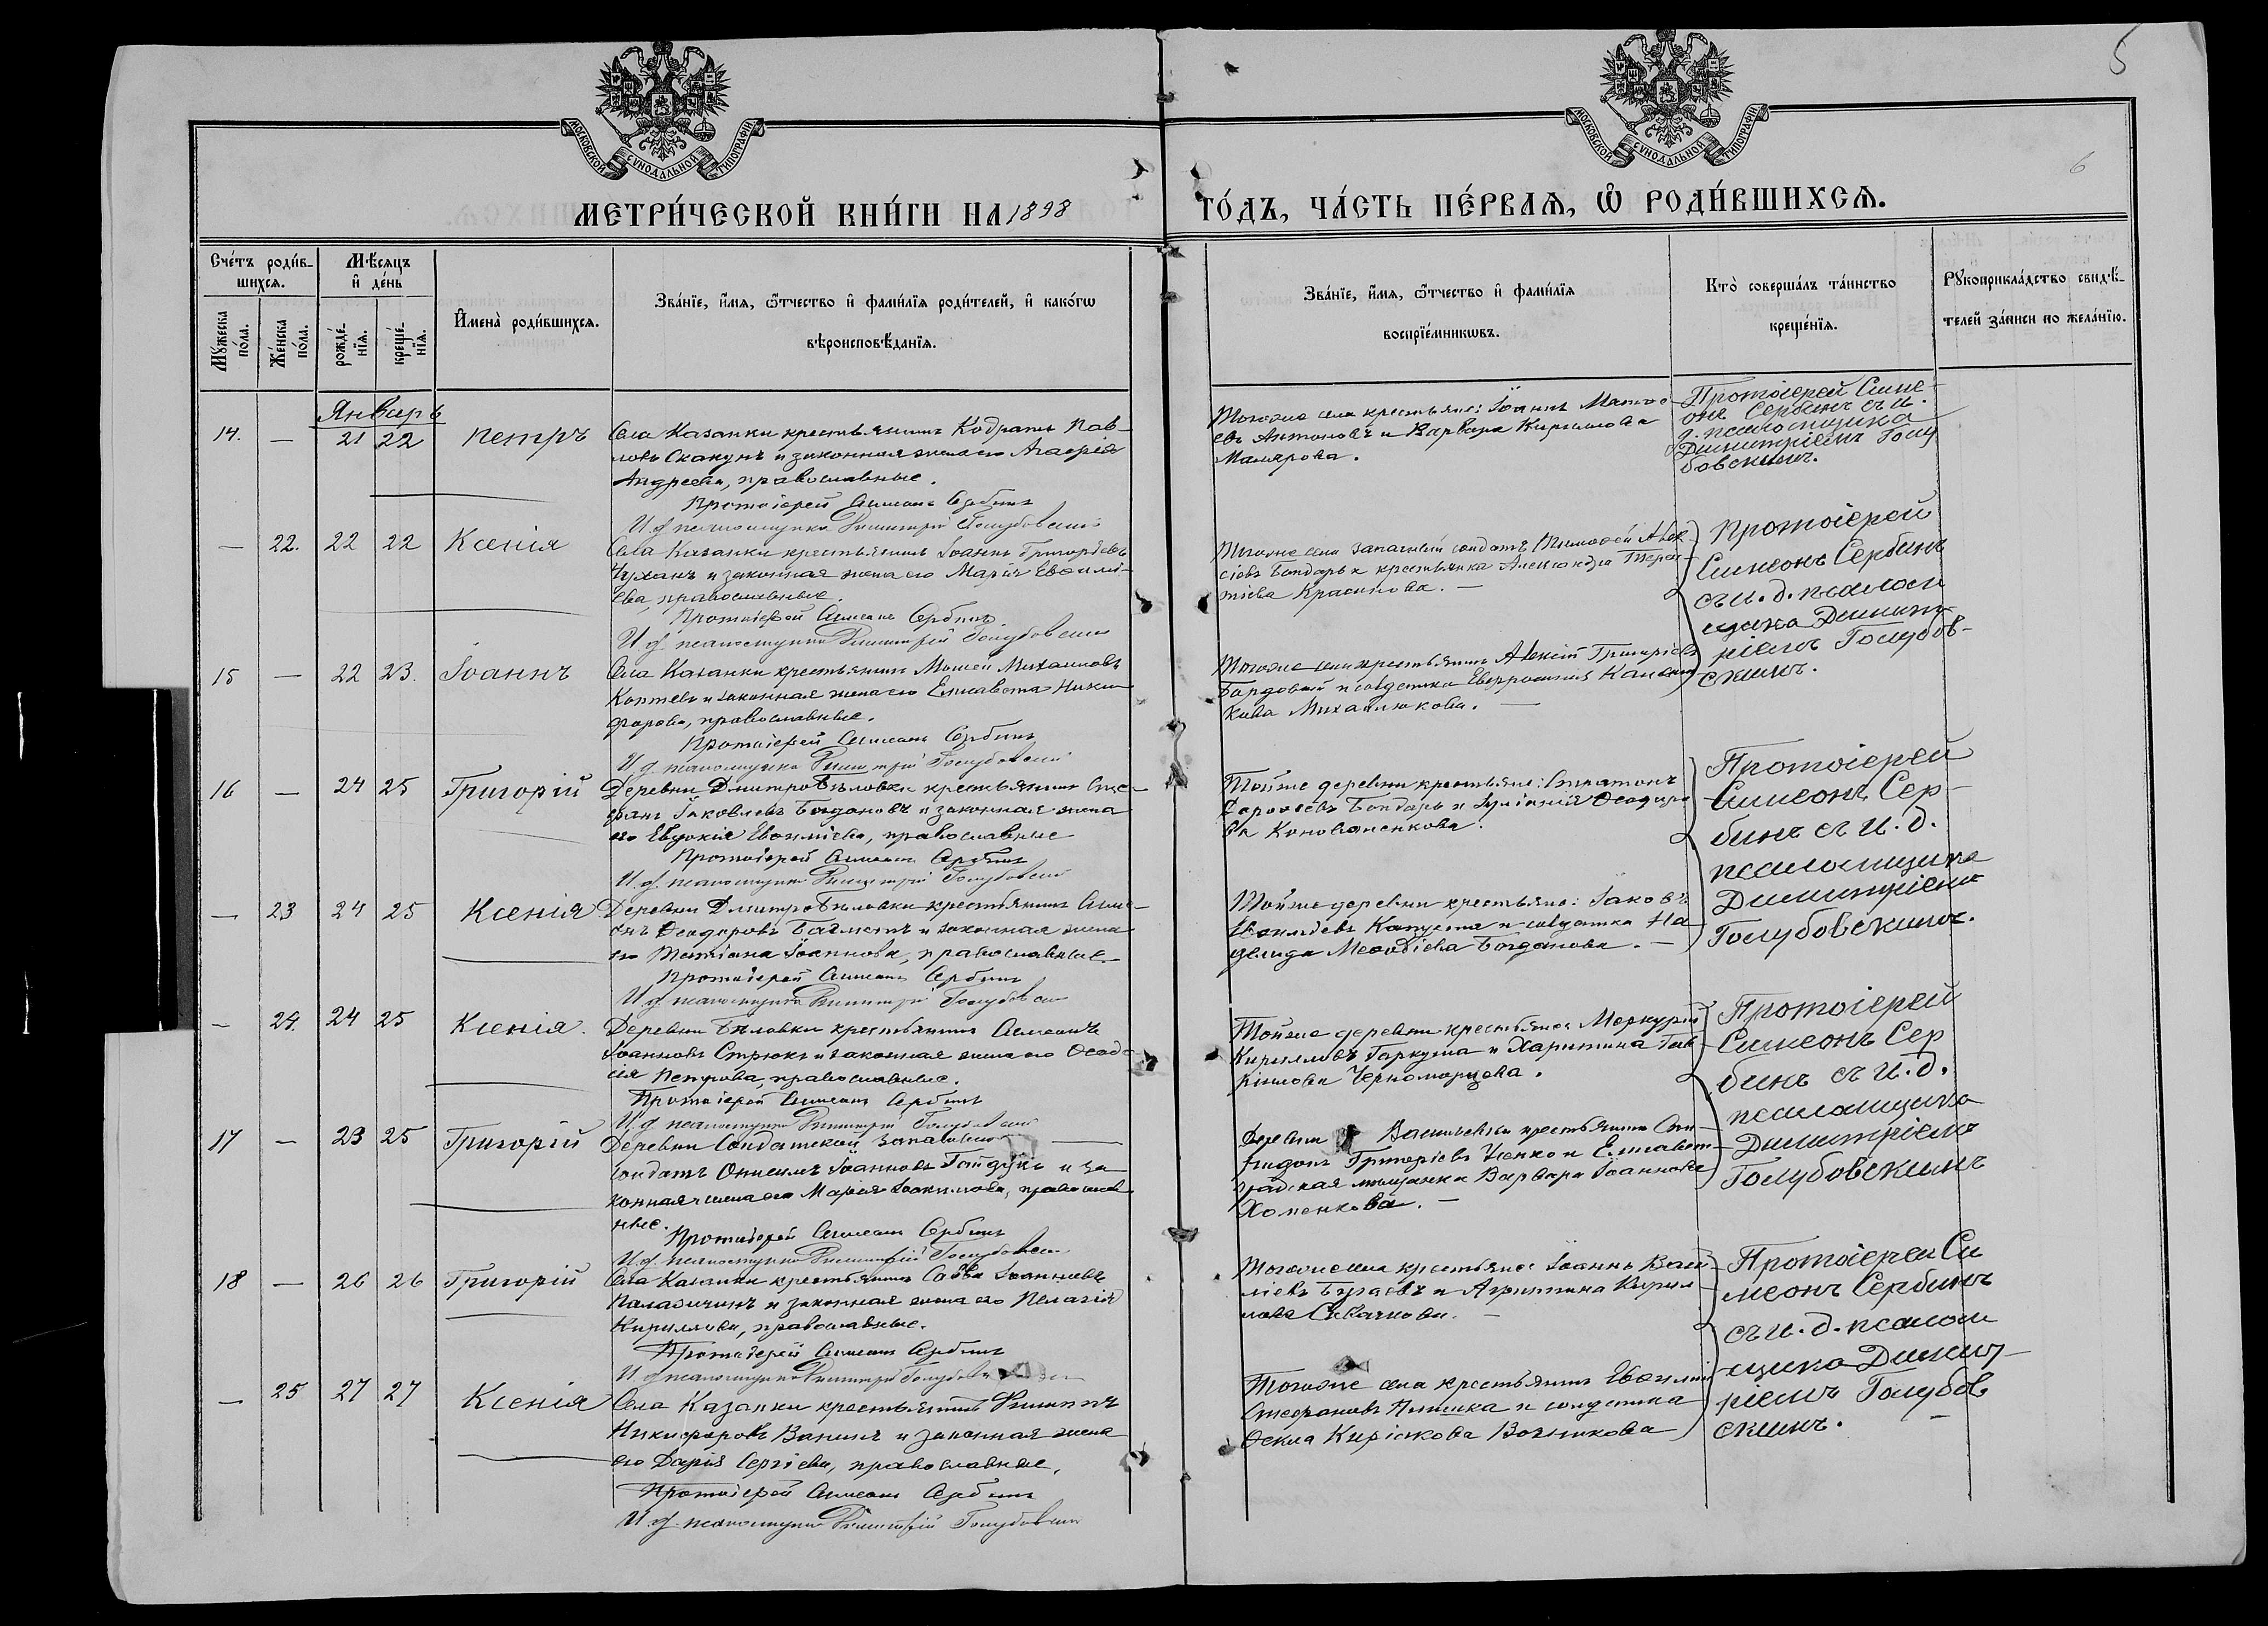 5
6
МОСКОВСКОЙ СѴНОДАЛЬНОЙ ТИПОГРАФІИ
МОСКОВСКОЙ СѴНОДАЛЬНОЙ ТИПОГРАФІИ
МЕТРИ́ЧЕСКОЙ КНИ́ГИ НА 1898
ГО́ДЪ, ЧА́СТЬ ПЕ́РВАѦ, Ѡ РОДИ́ВШИХСѦ.
Сче́тъ роди́в-
шихсѧ.
Мѣ́сѧцъ
и де́нь
Мꙋ́жеска по́ла.
Же́нска по́ла.
рожде́нїѧ.
креще́нїѧ.
Имена̀ роди́вшихсѧ.
Зва́нїе, и́мѧ, ѻ҆́тчество и фами́лїѧ роди́телей, и како́гѡ
вѣроисповѣ́данїѧ.
Зва́нїе, и́мѧ, ѻ҆́тчество и фами́лїѧ
воспрїе́мникѡвъ.
Кто̀ соверша́лъ та́инство
креще́нїѧ.
Рꙋкоприкла́дство свидѣ́-
телей за́писи по жела́нїю.
Январь
14. — 21 22 Петръ
Села Казанки крестьянинъ Кодратъ Пав-
ловъ Скакунъ и законная жена его Агафія
Андреева, православные.
Протоіерей Симеонъ Сербинъ
И. д. псаломщика Димитрій Голубовскій
Тогоже села крестьяне: Іоаннъ Матѳе
евъ Антоновъ и Варвара Кириллова
Малярова.
Протоіерей Симе-
онъ Сербинъ съ и.
д. псаломщика
Димитріемъ Голу
бовскимъ.
— 22. 22 22 Ксенія
Села Казанки крестьянинъ Іоаннъ Григорьевъ
Чуханъ и законная жена его Марія Евѳимі-
ева, православные.
Протоіерей Симеонъ Сербинъ.
И. д. псаломщика Димитрій Голубовскій
Тогоже села запасный солдатъ Тимоѳей Алек
сіевъ Бондарь и крестьянка Александра Терен-
тіева Красикова. —
Протоіерей
Симеонъ Сербинъ
съ и. д. псалом
щика Димит-
ріемъ Голубов-
скимъ.
15 — 22 23. Іоаннъ
Села Казанки крестьянинъ Моисей Михаиловъ
Коптевъ и законная жена его Елисавета Ники
форова, православные.
Протоіерей Симеонъ Сербинъ
И. д. псаломщика Димитрій Голубовскій
Тогоже села крестьянинъ Алексій Григоріевъ
Бардовый и солдатка Евфросинія
Михайлюкова. —
16 — 24 25 Григорій
Деревни Дмитро-Бѣловки крестьянинъ Сте-
фанъ Іаковлевъ Богдановъ и законная жена
его Евдокія Евѳиміева, православные
Протоіерей Симеонъ Сербинъ
И. д. псаломщика Димитрій Голубовскій
Тойже деревни крестьяне: Стратонъ
Дороѳеевъ Бондарь и Іуліанія Ѳеодоро
ва Коноваленкова.
Протоіерей
Симеонъ Сер-
бинъ съ и. д.
псаломщика
Димитріемъ
Голубовскимъ.
— 23 24 25 Ксенія
Деревни Дмитро-Бѣловки крестьянинъ Симе-
онъ Ѳеодоровъ и законная жена
его Татіана Іоаннова, православные.
Протоіерей Симеонъ Сербинъ
И. д. псаломщика Димитрій Голубовскій
Тойже деревни крестьяне: Іаковъ
Капуста и солдатка
Меѳодіева Богданова. —
— 24. 24 25 Ксенія.
Деревни Бѣловки крестьянинъ Симеонъ
Іоанновъ Стрюкъ и законная жена его Ѳеодо
сія Петрова, православные.
Протоіерей Симеонъ Сербинъ
И. д. псаломщика Димитрій Голубовскій
Тойже деревни крестьяне Меркурій
Кирилловъ Гаркуша и Харитина Гав
риилова Черноморцева.
Протоіерей
Симеонъ Сер
бинъ съ и. д.
псаломщика
Димитріемъ
Голубовскимъ
17 — 23 25 Григорій
Деревни Солдатской запасный —
солдатъ Онисимъ Іоанновъ Гайдукъ и за
конная жена его Марія Іоакимова, православ
ные.
Протоіерей Симеонъ Сербинъ
И. д. псаломщика Димитрій Голубовскій
Деревни Васильевки крестьянинъ Спи-
ридонъ Григоріевъ Ценко и Елисавет-
градская мѣщанка Варвара Іоаннова
Хоменкова. —
18 — 26 26 Григорій
Села Казанки крестьянинъ Савва Іоанновъ
Паламичукъ и законная жена его Пелагія
Кириллова, православные.
Протоіерей Симеонъ Сербинъ
И. д. псаломщика Димитрій Голубовскій
Тогоже села крестьяне Іоаннъ Васи
ліевъ Бугаевъ и Агриппина Кирил
лова Сивачкова. —
Протоіерей Си
меонъ Сербинъ
съ и. д. псалом
щика Димит-
ріемъ Голубов
скимъ. —
— 25 27 27 Ксенія
Села Казанки крестьянинъ Филиппъ
Никифоровъ Ванинъ и законная жена
его Дарія Сергіева, православные.
Протоіерей Симеонъ Сербинъ
И. д. псаломщика Димитрій Голубовскій
Тогоже села крестьянинъ Евѳимій
Стефановъ и солдатка
Ѳекла Киріакова Вочникова